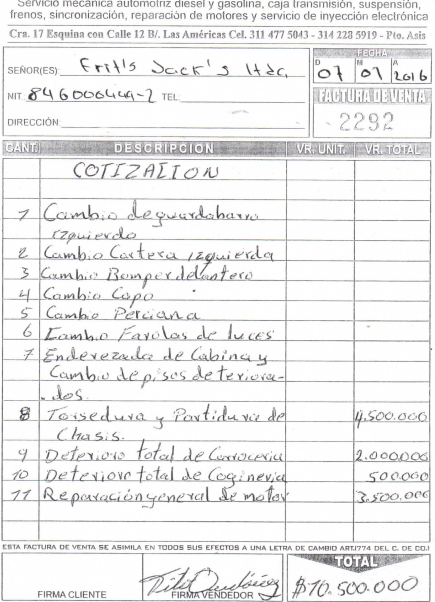 Servicio mecánica automotriz diesel y gasolina, caja transmisión, suspensión,
frenos, sincronización, reparación de motores y servicio de inyección electrónica
Cra. 17 Esquina con Calle 12 B/. Las Américas Cel. 311 477 5043 - 314 228 5919 - Pto. Asis
SEÑOR(ES): Frit's Jack's ltda
FECHA
D M A
07 01 2016
NIT. 846000449-2 TEL:
FACTURA DE VENTA
DIRECCIÓN:
2292
CANT. DESCRIPCION VR. UNIT. VR. TOTAL
COTIZACION
1 Cambio de guardabarro
izquierdo
2 Cambio Cartera izquierda
3 Cambio Bomper delantero
4 Cambio Capo
5 Cambio Perciana
6 Cambio Farolas de luces
7 Enderezada de Cabina y
Cambio de pisos deteriora-
dos.
8 Torsedura y Partidura de 4.500.000
Chasis.
9 Deterioro total de Carroceria 2.000.000
10 Deterioro total de Cogineria 500.000
11 Reparación general de motor 3.500.000
ESTA FACTURA DE VENTA SE ASIMILA EN TODOS SUS EFECTOS A UNA LETRA DE CAMBIO ART.(774 DEL C. DE CO.)
TOTAL
FIRMA CLIENTE FIRMA VENDEDOR $10.500.000